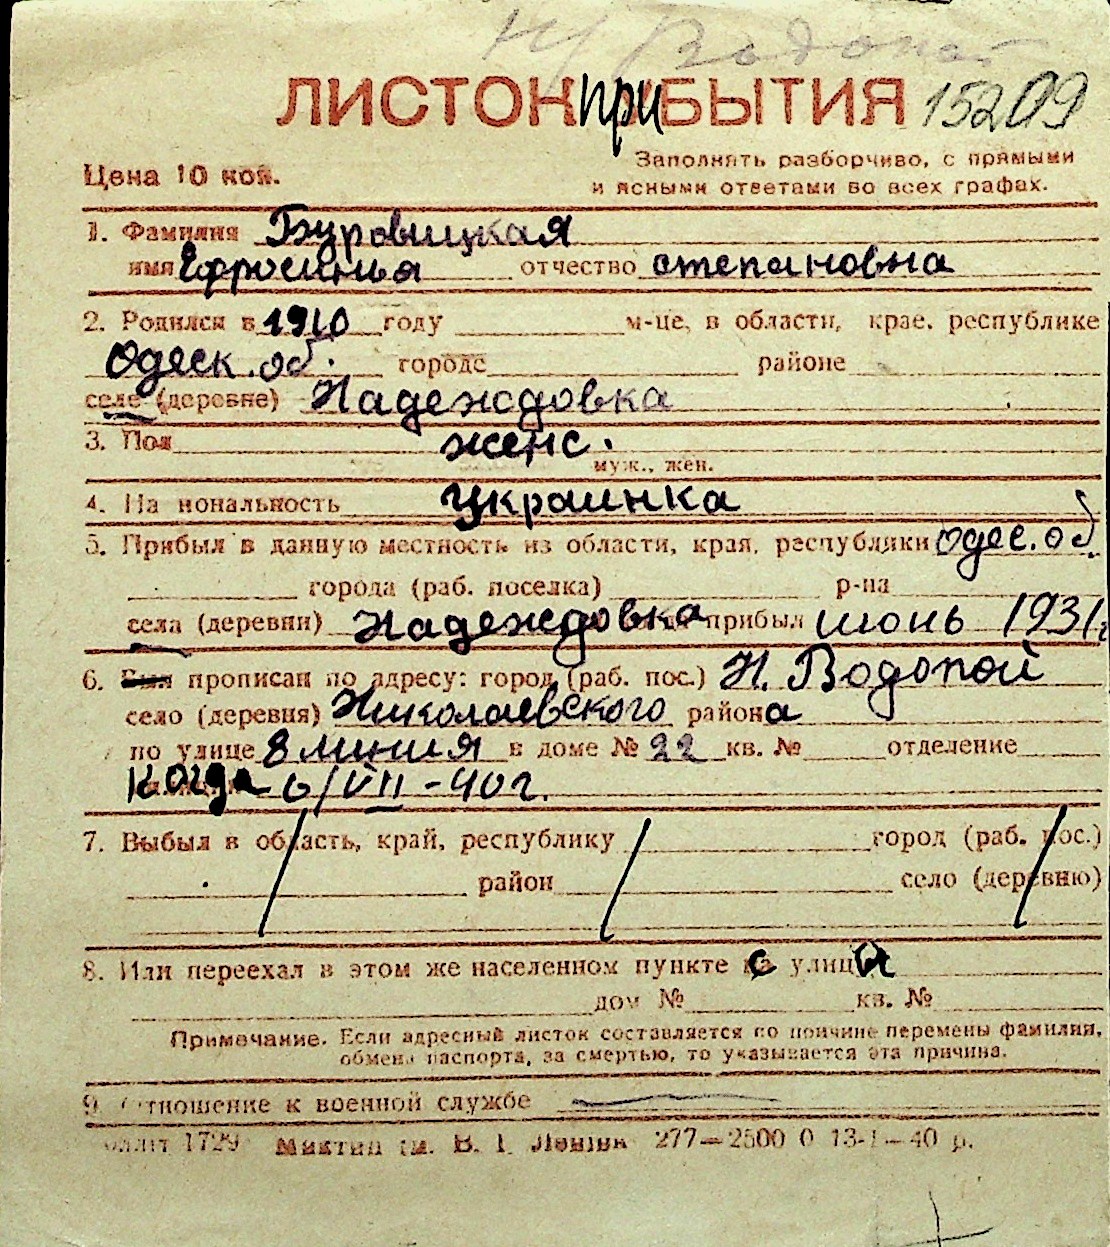 Н/Водопой
ЛИСТОК ПРИБЫТИЯ 15209
Цена 10 коп.
Заполнять разборчиво, с прямыми
и ясными ответами во всех графах.
1. Фамилия Буровицкая
имя Ефросинья отчество степановна
2. Родился в 1910 году м-це, в области, крае, республике
Одеск. об. городе районе
селе (деревне) Надеждовка
3. Пол женс.
муж., жен.
4. Национальность Украинка
5. Прибыл в данную местность из области, края, республики Одес. об.
города (раб. поселка) р-на
села (деревни) Надеждовка прибыл июнь 1931 г
6. Был прописан по адресу: город (раб. пос.) Н. Водопой
село (деревня) Николаевского района
по улице 8 линия в доме № 22 кв. № отделение
Когда 6/VII-40 г.
7. Выбыл в область, край, республику город (раб. пос.)
район село (деревню)
8. Или переехал в этом же населенном пункте с улицы
дом № кв. №
Примечание. Если адресный листок составляется по причине перемены фамилии,
обмена паспорта, за смертью, то указывается эта причина.
9. Отношение к военной службе
1729 им. В. І. Леніна 277—2500 0 13-І—40 р.